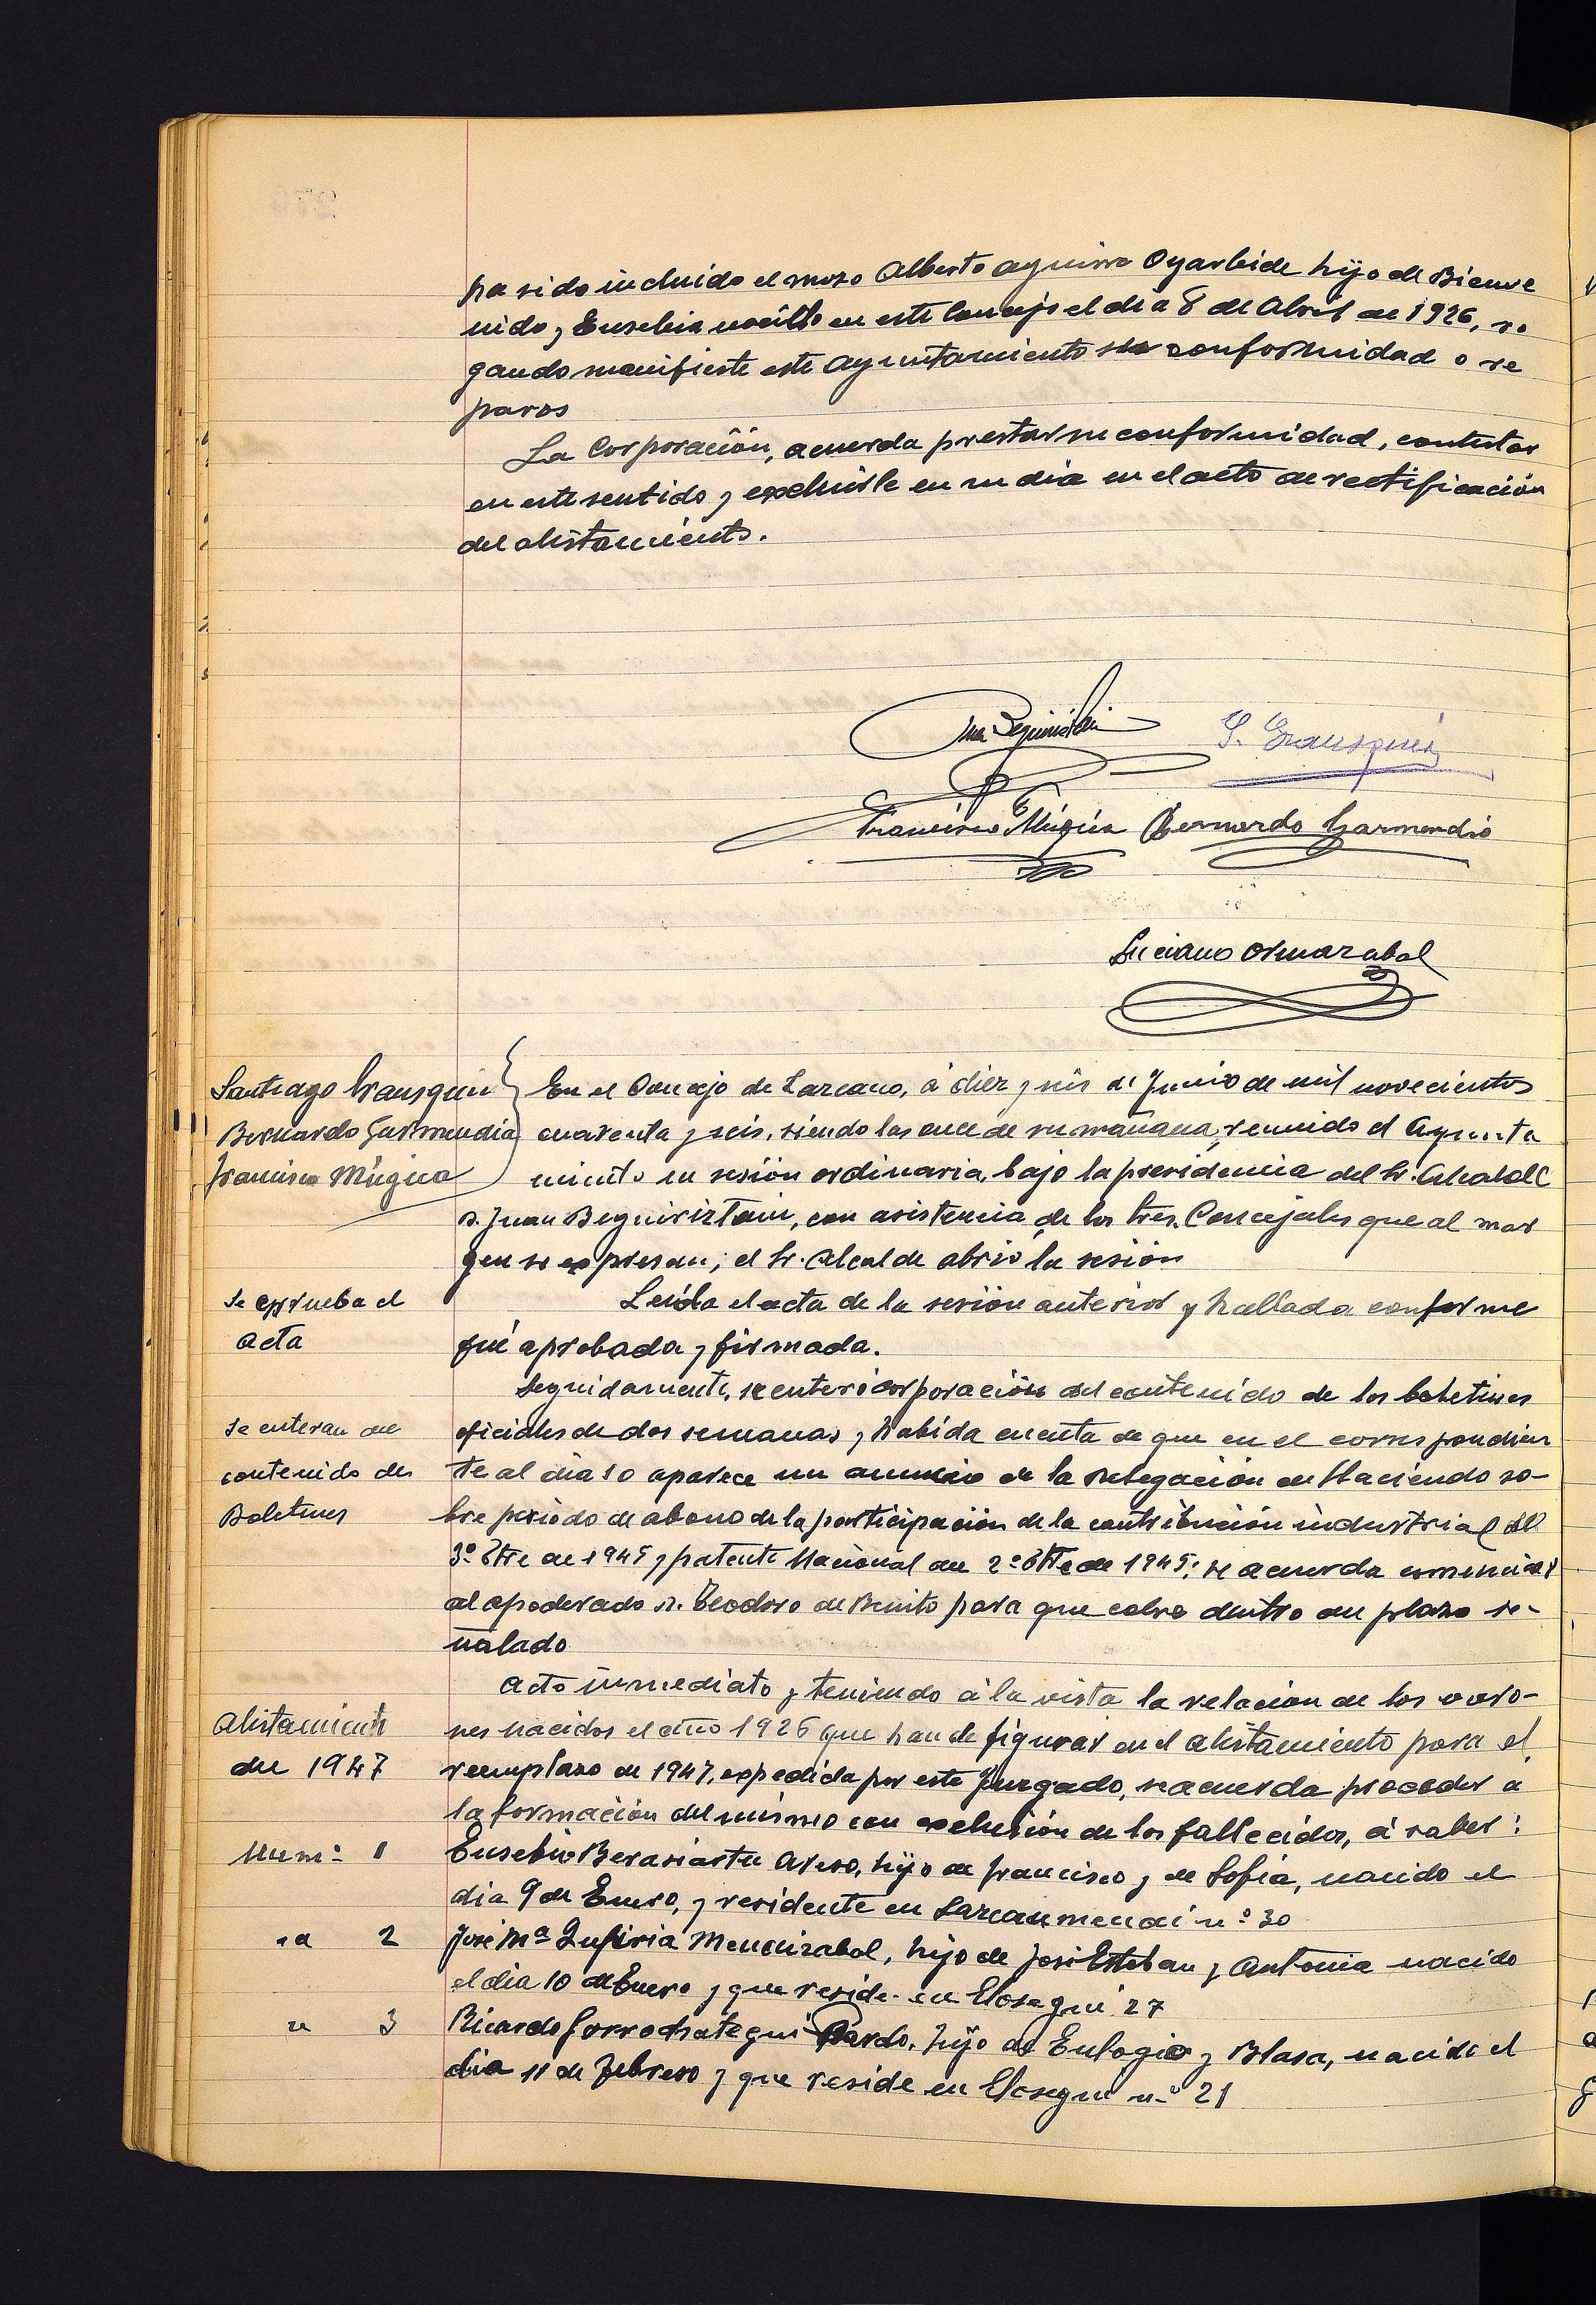 ha sido incluido el mozo Alberto Aguirre Oyarbide hijo de Bienve
nido y Eusebia nacido en este Concejo el día 8 de Abril de 1926, ro
gando manifieste este Ayuntamiento su conformidad o re
paros
La Corporación, acuerda prestar su conformidad, contestar
en este sentido y excluirle en su dia en el acto de rectificación
del alistamiento.
Juan Beguiristain
S. Irausquin
Francisco Múgica Bernardo Garmendia
Luciano Ormazabal
Santiago Irausquin
Bernardo Garmendia
Francisco Múgica
En el Concejo de Lazcano, á diez y seis de Junio de mil novecientos
cuarenta y seis, siendo las once de su mañana, reunido el Ayunta
miento en sesión ordinaria, bajo la presidencia del Sr. Alcalde
D. Juan Beguiriztain, con asistencia de los tres Concejales que al mar
gen se expresan; el Sr. Alcalde abrió la sesión
Se aprueba el
acta
Leída el acta de la sesión anterior y hallada conforme
fué aprobada y firmada.
Se enteran del
contenido de
Boletines
Seguidamente, se enteró corporación del contenido de los boletines
oficiales de dos semanas, y habida cuenta de que en el correspondien
te al día 10 aparece un anuncio de la Delegación de Hacienda so-
bre período de abono de la participación de la contribución industrial del
3º Etre de 1945 y patente Nacional del 2º Etre de 1945; se acuerda comunicar
al apoderado D. Teodoro de Benito para que cobre dentro del plazo se-
ñalado
Alistamiento
de 1947
Acto inmediato y teniendo á la vista la relación de los varo-
nes nacidos el año 1926 que han de figurar en el alistamiento para el
reemplazo de 1947, expedida por este Juzgado, se acuerda proceder a
la formación del mismo con exclusión de los fallecidos, á saber:
Num: 1
Eusebio Berasiartu hijo de Francisco y de Sofia, nacido el
dia 9 de Enero, y residente en Lazcanmendi nº 30
id 2
José Mª Mendizabal, hijo de José Esteban y Antonia nacido
el dia 10 de Enero y que reside en Elosegui 27
id 3
Ricardo Gorrochategui Pardo, hijo de Eulogio y Blasa, nacido el
dia 11 de Febrero y que reside en Elosegui nº 21